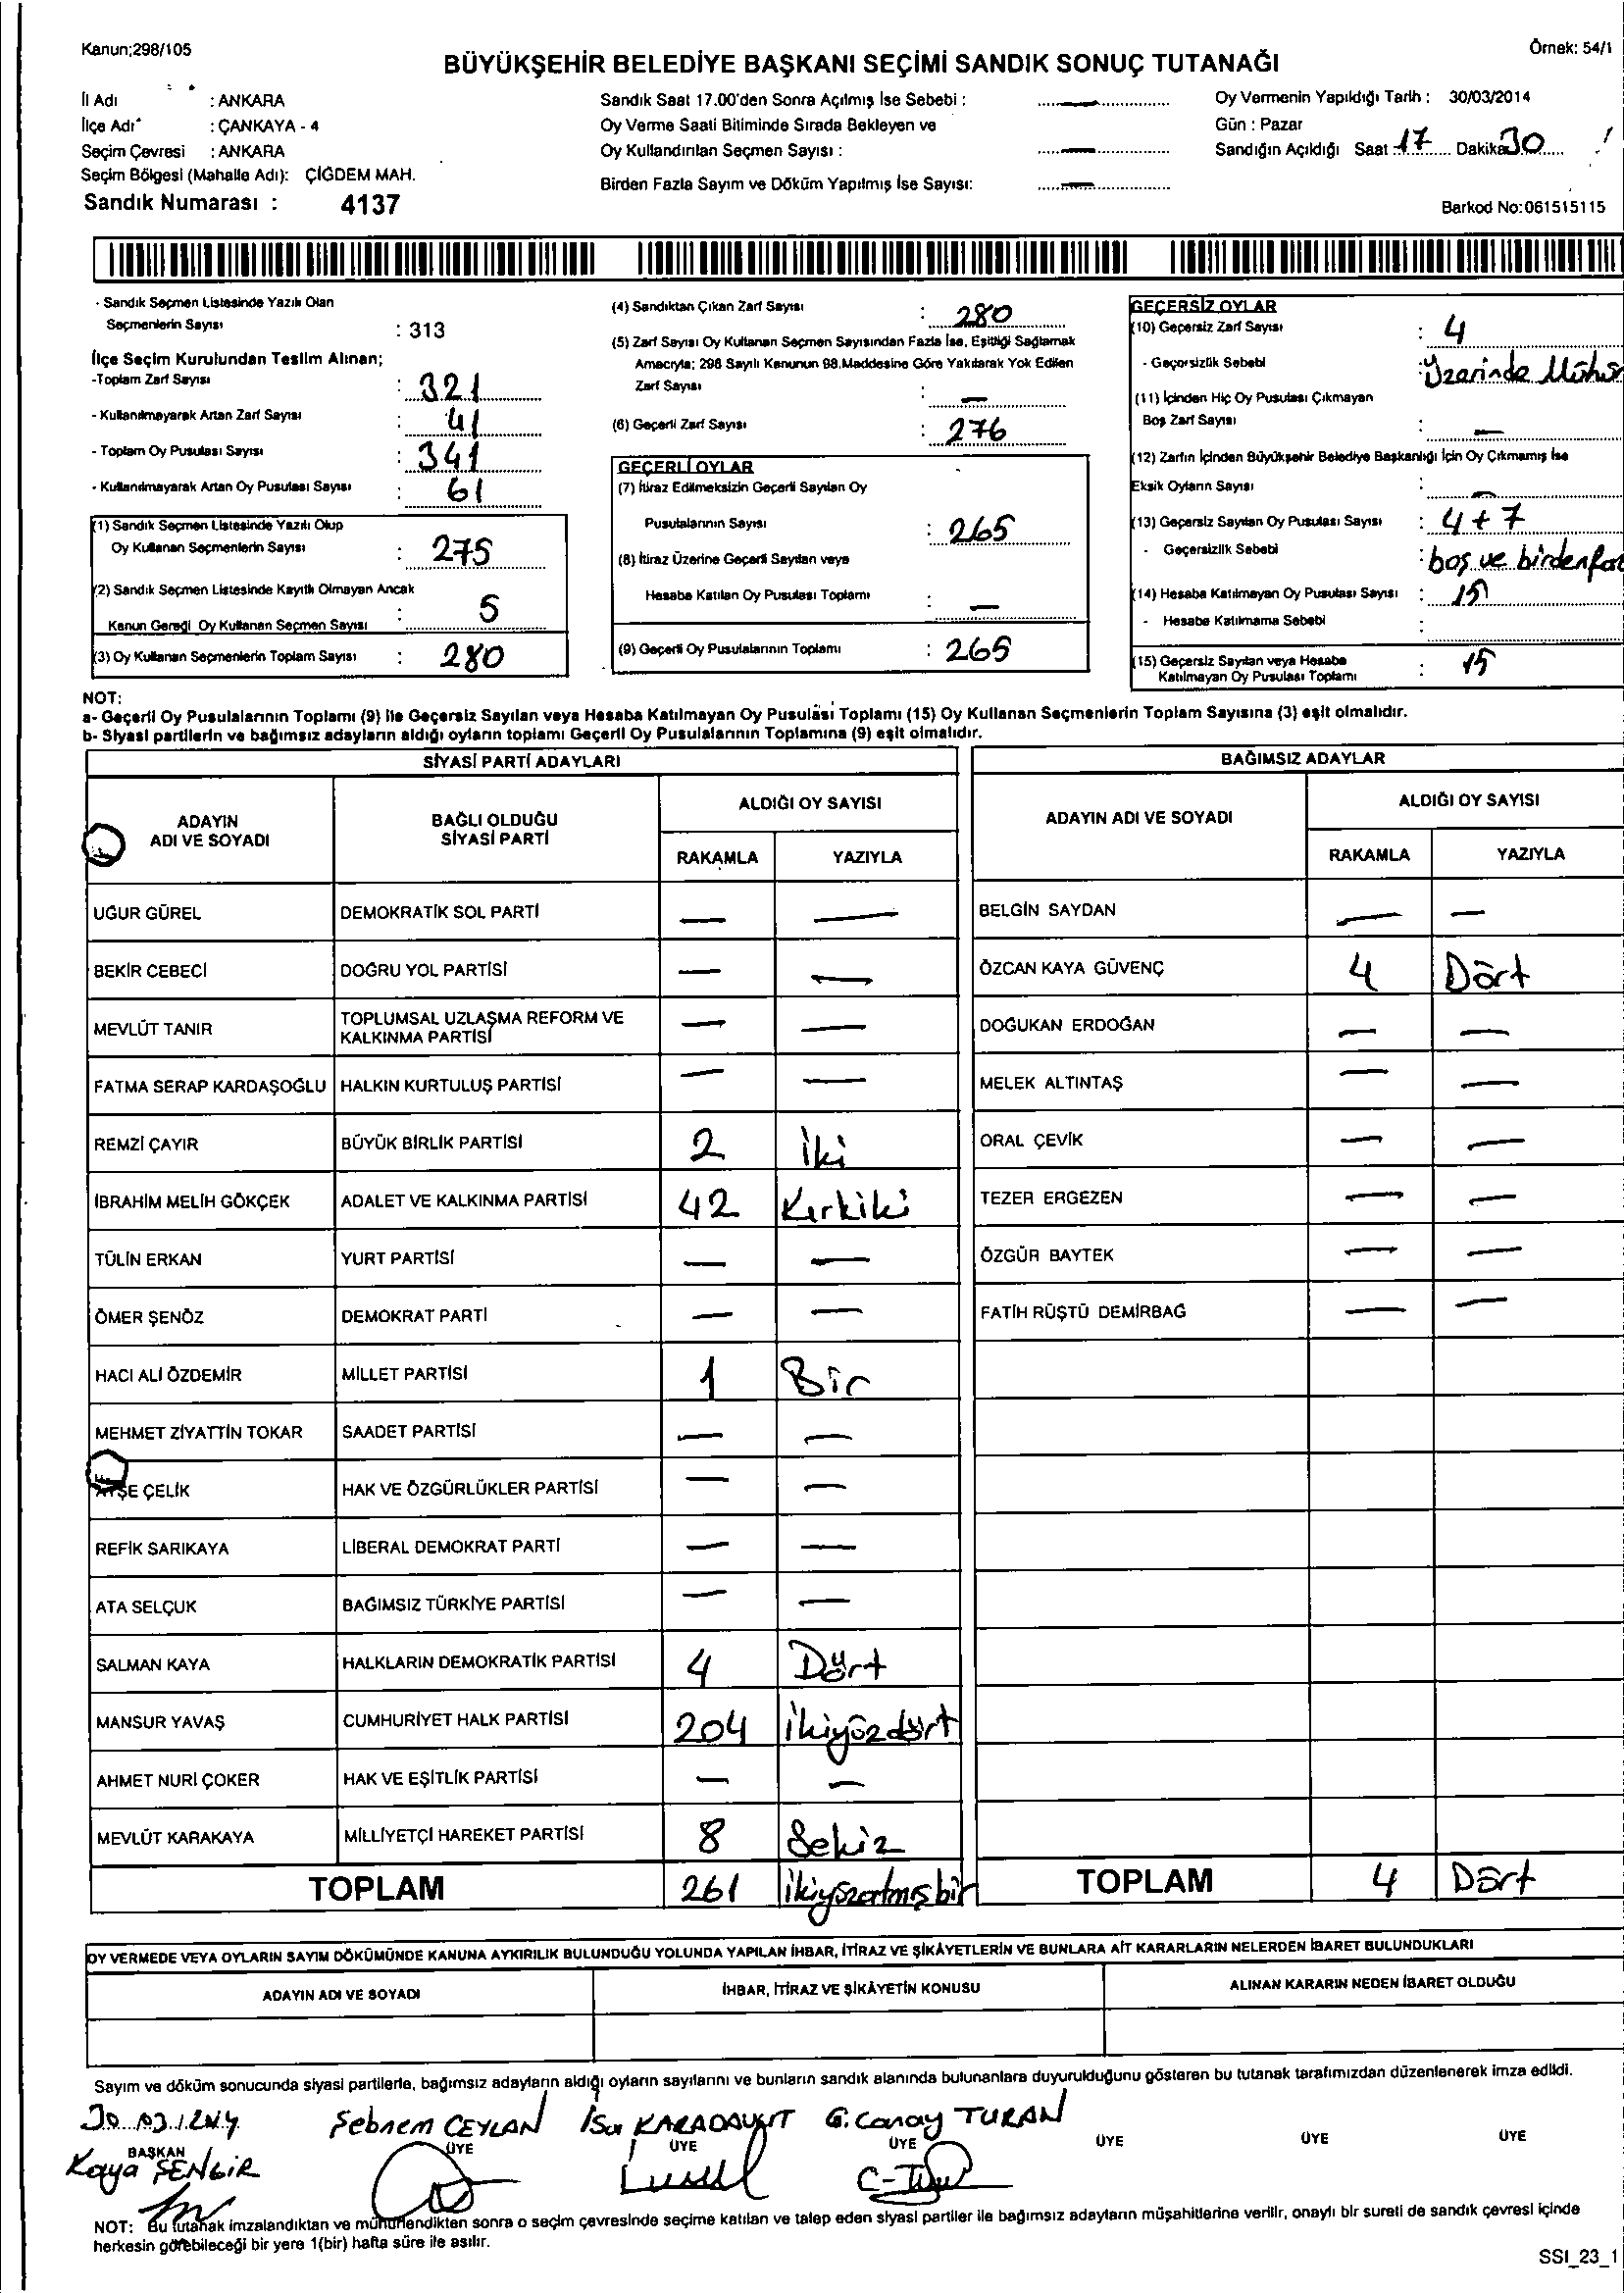 Kanun;298/105
Örnek: 54/1
BÜYÜKŞEHİR BELEDİYE BAŞKANI SEÇİMİ SANDIK SONUÇ TUTANAĞI
İl Adı : ANKARA
İlçe Adı : ÇANKAYA - 4
Seçim Çevresi : ANKARA
Seçim Bölgesi (Mahalle Adı): ÇİĞDEM MAH.
Sandık Numarası : 4137
Sandık Saat 17.00'den Sonra Açılmış İse Sebebi : —
Oy Verme Saati Bitiminde Sırada Bekleyen ve
Oy Kullandırılan Seçmen Sayısı : —
Birden Fazla Sayım ve Döküm Yapılmış İse Sayısı: —
Oy Vermenin Yapıldığı Tarih : 30/03/2014
Gün : Pazar
Sandığın Açıldığı Saat 17 Dakika 30
Barkod No:061515115
- Sandık Seçmen Listesinde Yazılı Olan
Seçmenlerin Sayısı : 313
İlçe Seçim Kurulundan Teslim Alınan;
-Toplam Zarf Sayısı : 321
- Kullanılmayarak Artan Zarf Sayısı : 41
- Toplam Oy Pusulası Sayısı : 341
- Kullanılmayarak Artan Oy Pusulası Sayısı : 61
(1) Sandık Seçmen Listesinde Yazılı Olup
Oy Kullanan Seçmenlerin Sayısı : 275
(2) Sandık Seçmen Listesinde Kayıtlı Olmayan Ancak
Kanun Gereği Oy Kullanan Seçmen Sayısı : 5
(3) Oy Kullanan Seçmenlerin Toplam Sayısı : 280
(4) Sandıktan Çıkan Zarf Sayısı : 280
(5) Zarf Sayısı Oy Kullanan Seçmen Sayısından Fazla İse, Eşitliği Sağlamak
Amacıyla; 298 Sayılı Kanunun 98.Maddesine Göre Yakılarak Yok Edilen
Zarf Sayısı : —
(6) Geçerli Zarf Sayısı : 276
GEÇERLİ OYLAR
(7) İtiraz Edilmeksizin Geçerli Sayılan Oy
Pusulalarının Sayısı : 265
(8) İtiraz Üzerine Geçerli Sayılan veya
Hesaba Katılan Oy Pusulası Toplamı : —
(9) Geçerli Oy Pusulalarının Toplamı : 265
GEÇERSİZ OYLAR
(10) Geçersiz Zarf Sayısı : 4
- Geçersizlik Sebebi : Üzerinde Mühür
(11) İçinden Hiç Oy Pusulası Çıkmayan
Boş Zarf Sayısı : —
(12) Zarfın İçinden Büyükşehir Belediye Başkanlığı İçin Oy Çıkmamış İse
Eksik Oyların Sayısı : —
(13) Geçersiz Sayılan Oy Pusulası Sayısı : 4 + 7
- Geçersizlik Sebebi : boş ve birden faz
(14) Hesaba Katılmayan Oy Pusulası Sayısı : 15
- Hesaba Katılmama Sebebi :
(15) Geçersiz Sayılan veya Hesaba
Katılmayan Oy Pusulası Toplamı : 15
NOT:
a- Geçerli Oy Pusulalarının Toplamı (9) ile Geçersiz Sayılan veya Hesaba Katılmayan Oy Pusulası Toplamı (15) Oy Kullanan Seçmenlerin Toplam Sayısına (3) eşit olmalıdır.
b- Siyasi partilerin ve bağımsız adayların aldığı oyların toplamı Geçerli Oy Pusulalarının Toplamına (9) eşit olmalıdır.
SİYASİ PARTİ ADAYLARI
ADAYIN ADI VE SOYADI BAĞLI OLDUĞU SİYASİ PARTİ ALDIĞI OY SAYISI
RAKAMLA YAZIYLA
UĞUR GÜREL DEMOKRATİK SOL PARTİ — —
BEKİR CEBECİ DOĞRU YOL PARTİSİ — —
MEVLÜT TANIR TOPLUMSAL UZLAŞMA REFORM VE KALKINMA PARTİSİ — —
FATMA SERAP KARDAŞOĞLU HALKIN KURTULUŞ PARTİSİ — —
REMZİ ÇAYIR BÜYÜK BİRLİK PARTİSİ 2 İki
İBRAHİM MELİH GÖKÇEK ADALET VE KALKINMA PARTİSİ 42 Kırkiki
TÜLİN ERKAN YURT PARTİSİ — —
ÖMER ŞENÖZ DEMOKRAT PARTİ — —
HACI ALİ ÖZDEMİR MİLLET PARTİSİ 1 Bir
MEHMET ZİYATTİN TOKAR SAADET PARTİSİ — —
AYŞE ÇELİK HAK VE ÖZGÜRLÜKLER PARTİSİ — —
REFİK SARIKAYA LİBERAL DEMOKRAT PARTİ — —
ATA SELÇUK BAĞIMSIZ TÜRKİYE PARTİSİ — —
SALMAN KAYA HALKLARIN DEMOKRATİK PARTİSİ 4 Dört
MANSUR YAVAŞ CUMHURİYET HALK PARTİSİ 204 İkiyüzdört
AHMET NURİ ÇOKER HAK VE EŞİTLİK PARTİSİ — —
MEVLÜT KARAKAYA MİLLİYETÇİ HAREKET PARTİSİ 8 Sekiz
TOPLAM 261 İkiyüzatmışbir
BAĞIMSIZ ADAYLAR
ADAYIN ADI VE SOYADI ALDIĞI OY SAYISI
RAKAMLA YAZIYLA
BELGİN SAYDAN — —
ÖZCAN KAYA GÜVENÇ 4 Dört
DOĞUKAN ERDOĞAN — —
MELEK ALTINTAŞ — —
ORAL ÇEVİK — —
TEZER ERGEZEN — —
ÖZGÜR BAYTEK — —
FATİH RÜŞTÜ DEMİRBAĞ — —
TOPLAM 4 Dört
OY VERMEDE VEYA OYLARIN SAYIM DÖKÜMÜNDE KANUNA AYKIRILIK BULUNDUĞU YOLUNDA YAPILAN İHBAR, İTİRAZ VE ŞİKÂYETLERİN VE BUNLARA AİT KARARLARIN NELERDEN İBARET BULUNDUKLARI
ADAYIN ADI VE SOYADI İHBAR, İTİRAZ VE ŞİKÂYETİN KONUSU ALINAN KARARIN NEDEN İBARET OLDUĞU
Sayım ve döküm sonucunda siyasi partilerle, bağımsız adayların aldığı oyların sayılarını ve bunların sandık alanında bulunanlara duyurulduğunu gösteren bu tutanak tarafımızdan düzenlenerek imza edildi.
30.03.2014 Şebnem CEYLAN İsa KARADAVUT G. Canay TURAN
BAŞKAN ÜYE ÜYE ÜYE ÜYE ÜYE ÜYE
Kaya ŞENGİR
NOT: Bu tutanak imzalandıktan ve mühürlendikten sonra o seçim çevresinde seçime katılan ve talep eden siyasi partiler ile bağımsız adayların müşahitlerine verilir, onaylı bir sureti de sandık çevresi içinde
herkesin görebileceği bir yere 1(bir) hafta süre ile asılır.
SSI_23_1